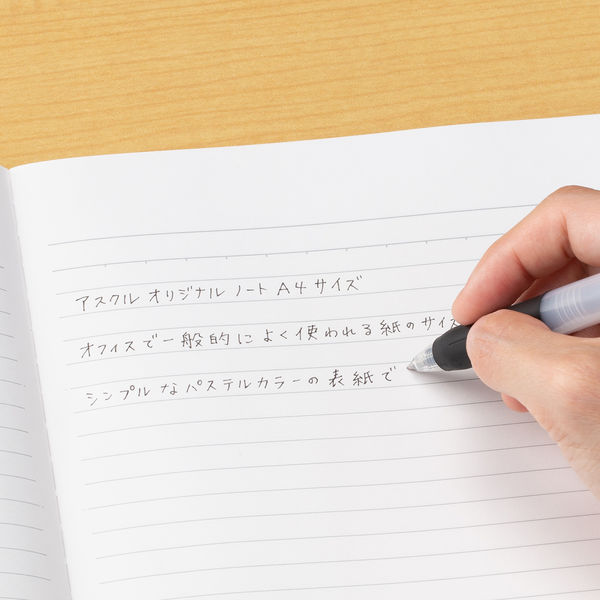 アスクル オリジナル ノート A4サイズ
オフィスで一般的によく使われる紙のサイズ
シンプルなパステルカラーの表紙で